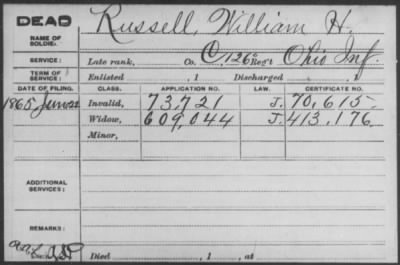 DEAD
NAME OF SOLDIER: Russell, William H.
SERVICE: Late rank, Co. C, 126" Reg't Ohio Inf.
TERM OF SERVICE: Enlisted , 1 Discharged , 1
DATE OF FILING. CLASS. APPLICATION NO. LAW. CERTIFICATE NO.
1865 June 22 Invalid, 73,721 J. 70,615.
Widow, 609,044 J. 413,176.
Minor,
ADDITIONAL SERVICES:
REMARKS:
Died , 1 , at